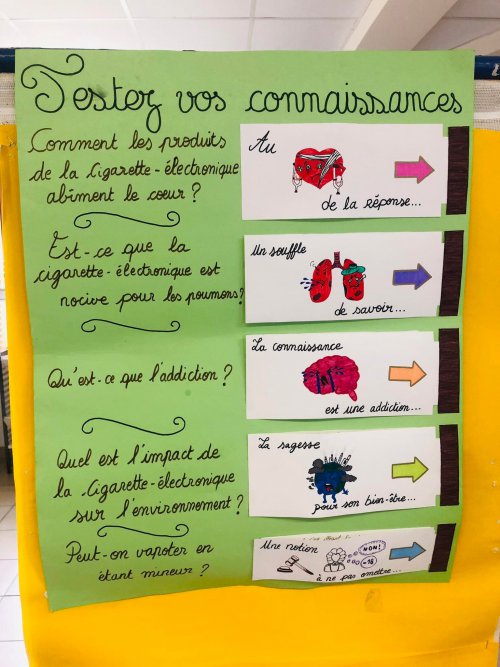 Testez vos connaissances
Comment les produits
de la Cigarette-électronique
abîment le cœur ?
Au
de la réponse...
Est-ce que la
cigarette-électronique est
nocive pour les poumons?
Un souffle
de savoir...
Qu'est-ce que l'addiction ?
La connaissance
est une addiction...
Quel est l'impact de
la Cigarette-électronique
sur l'environnement ?
La sagesse
pour son bien-être...
Peut-on vapoter en
étant mineur ?
Une notion
NON!
-18
à ne pas omettre...